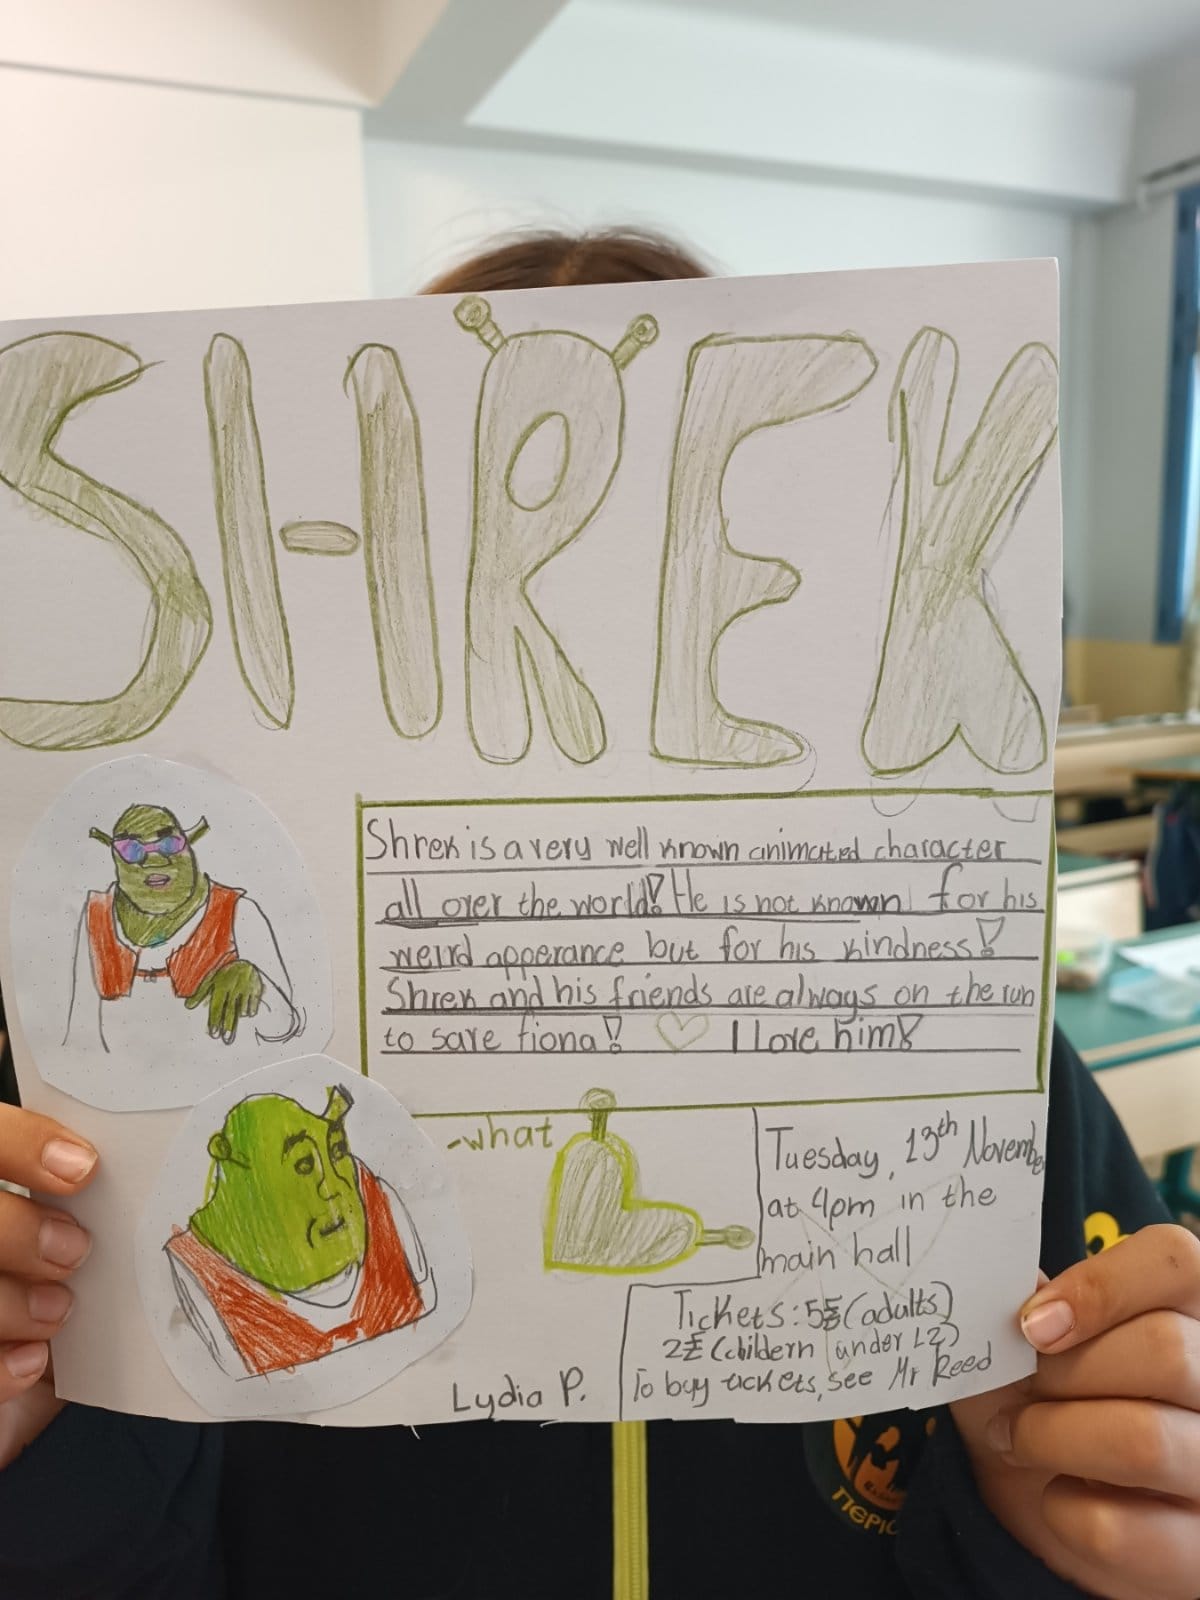 SHREK
Shrek is a very well known animated character
all over the world! He is not known for his
weird apperance but for his kindness!
Shrek and his friends are always on the run
to save fiona! I love him!
-what
Tuesday, 13th November
at 4pm in the
main hall
Tickets: 5£ (adults)
2£ (childern under 12)
To buy tickets, see Mr Reed
Lydia P.
ΠΕΡΙΣ